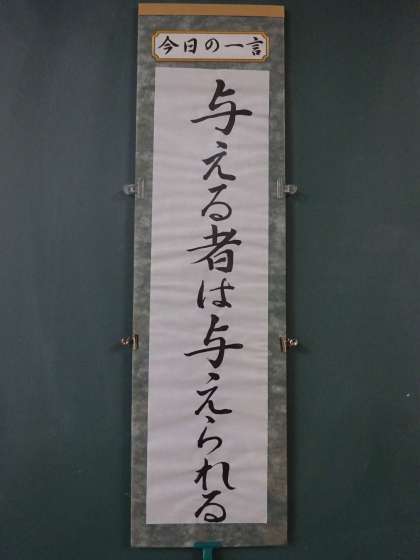 今日の一言
与える者は与えられる